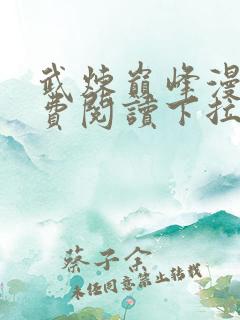 武炼巅峰漫
費閱讀下拉
蔡子余
未经同意禁止转载